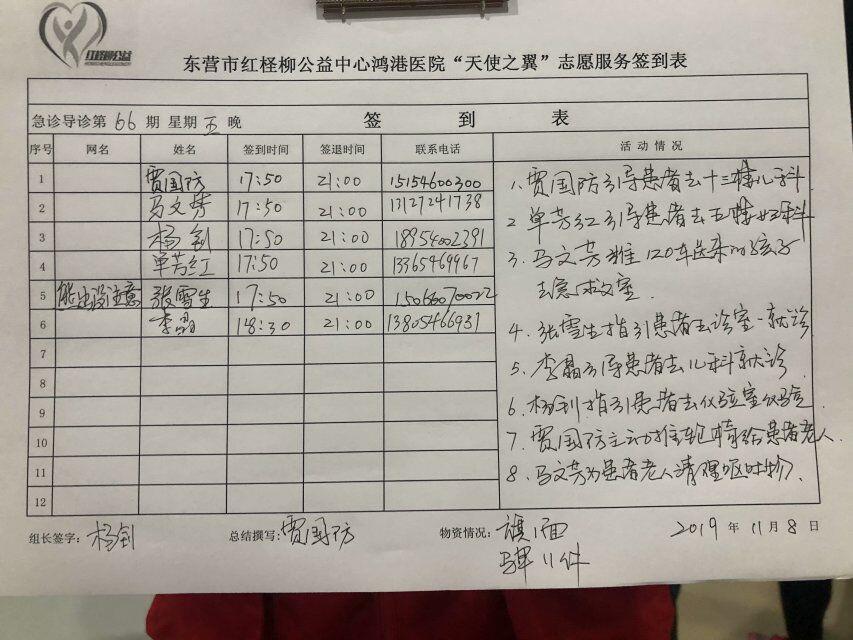 红柽柳公益
东营市红柽柳公益中心鸿港医院“天使之翼”志愿服务签到表
急诊导诊第 66 期 星期 五 晚 签 到 表
序号 网名 姓名 签到时间 签退时间 联系电话 活动情况
1 贾国防 17:50 21:00 15154600300
2 马文芳 17:50 21:00 13127241738
3 杨钊 17:50 21:00 18954002391
4 单芳红 17:50 21:00 13365469967
5 能出没注意 张雪生 17:50 21:00 15066070072
6 李晶 18:30 21:00 13805466931
7
8
9
10
11
12
1、贾国防引导患者去十三楼儿科
2 单芳红引导患者去五楼妇科
3、马文芳推120车送来的孩子
去急救室.
4、张雪生指引患者去诊室就诊
5、李晶引导患者去儿科就诊
6、杨钊指引患者去化验室化验
7、贾国防主动推轮椅给患者老人
8、马文芳为患者老人清理呕吐物
组长签字: 杨钊 总结撰写: 贾国防 物资情况: 旗1面 2019 年 11 月 8 日
11件